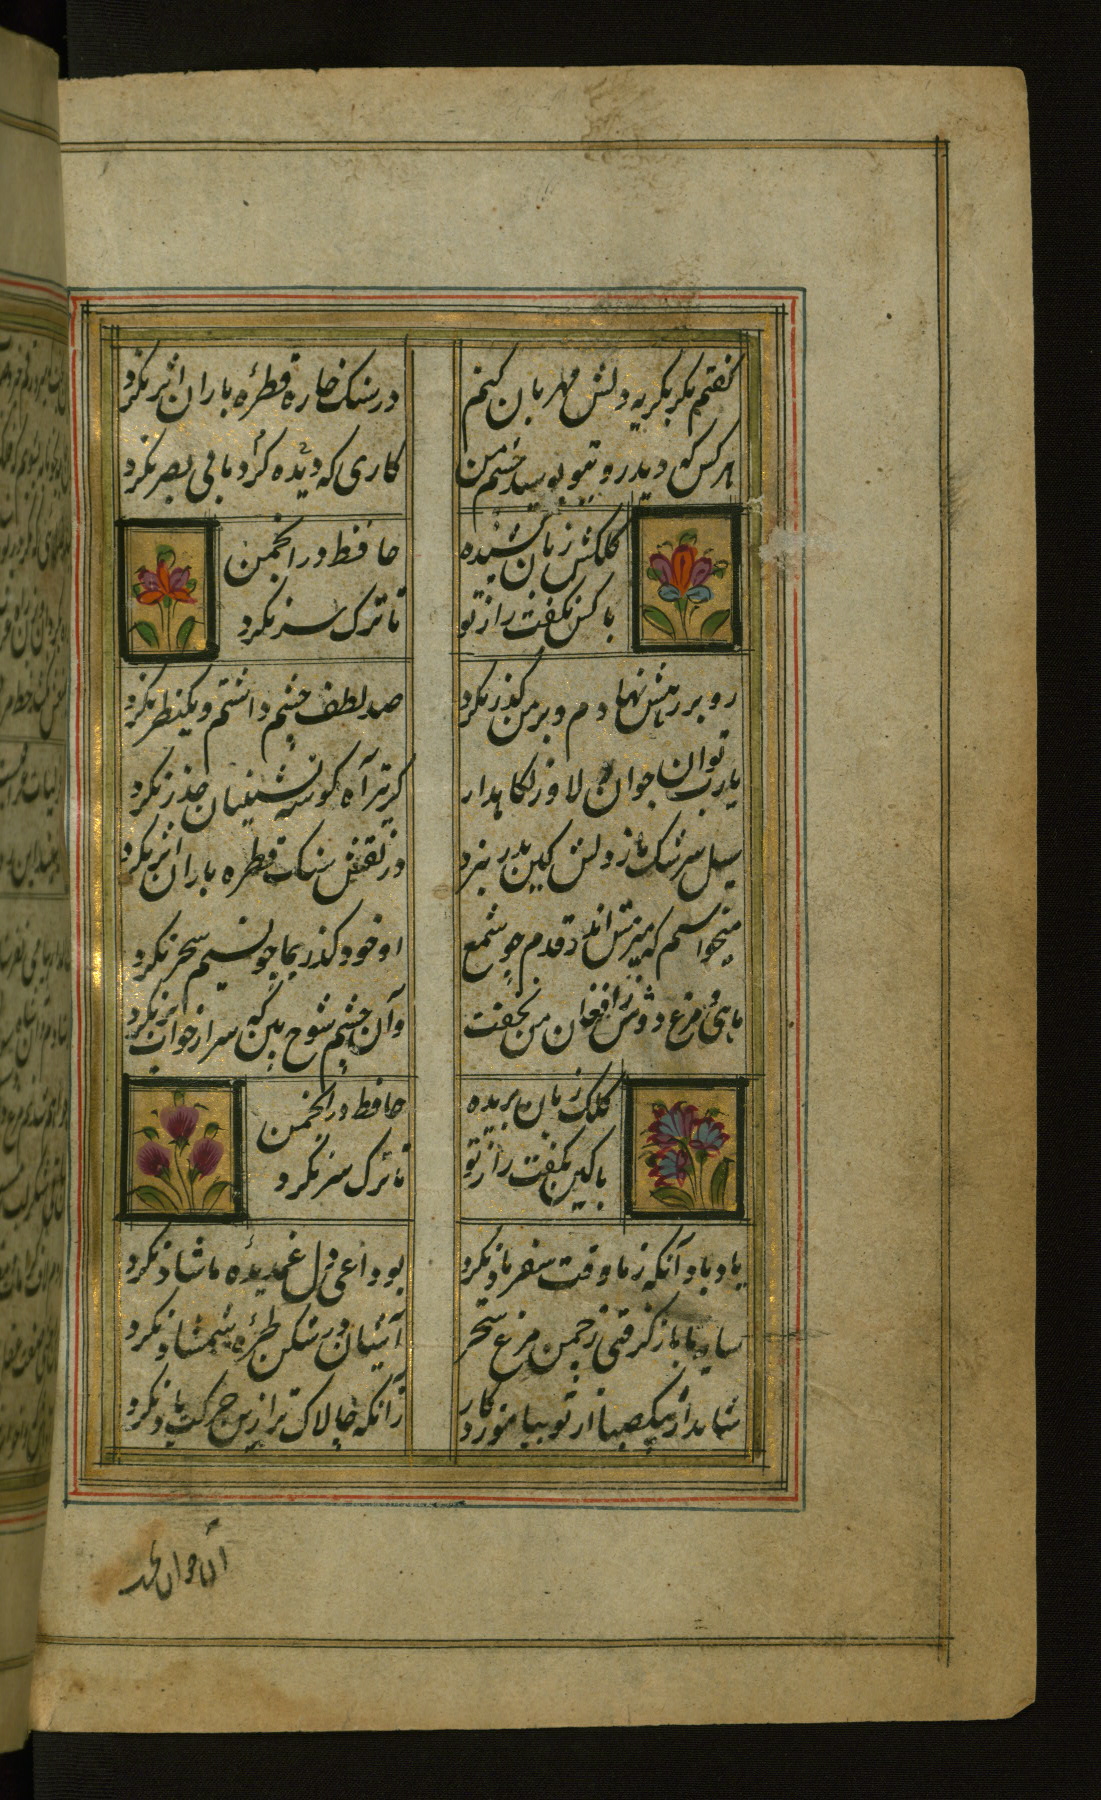 گفتم مگر بگریه دلش مهربان کنم
در سنک خاره قطرهٔ باران اثر نکرد
هر کس که دید روی تو بوسید چشم من
کاری که دیده کرد باقی بصر نکرد
کلکش زبان کشیده
حافظ در انجمن
با کس نگفت راز تو
تا ترک سر نکرد
رو بر رهش نهادم و بر من گذر نکرد
صد لطف چشم داشتم و یکنظر نکرد
یارب تو ان جوان دلاور نکاهدار
کز تیر آه گوشه نشینان حذر نکرد
سیل سرشک ما ز دلش کین بدر نبرد
در نقش سنک قطره باران اثر نکرد
میخواستم که میرمش اندر قدم چو شمع
او خود گذر بما چو نسیم سحر نکرد
ماهی و مرغ دوش ز افغان من نخفت
وآن چشم شوخ بین که سر از خواب بر نکرد
کلک زبان بریده
حافظ در انجمن
با کس نگفت راز تو
تا ترک سر نکرد
یاد باد آنکه ز ما وقت سفر یاد نکرد
بوداعی دل غمدیدهٔ ما شاد نکرد
سایه تا باز گرفتی ز چمن مرغ سحر
آشیان در شکن طرهٔ شمشاد نکرد
شاید ار پیک صبا از تو بیاموزد کار
زآنکه چالاک تر از این حرکت باد نکرد
آن جوان